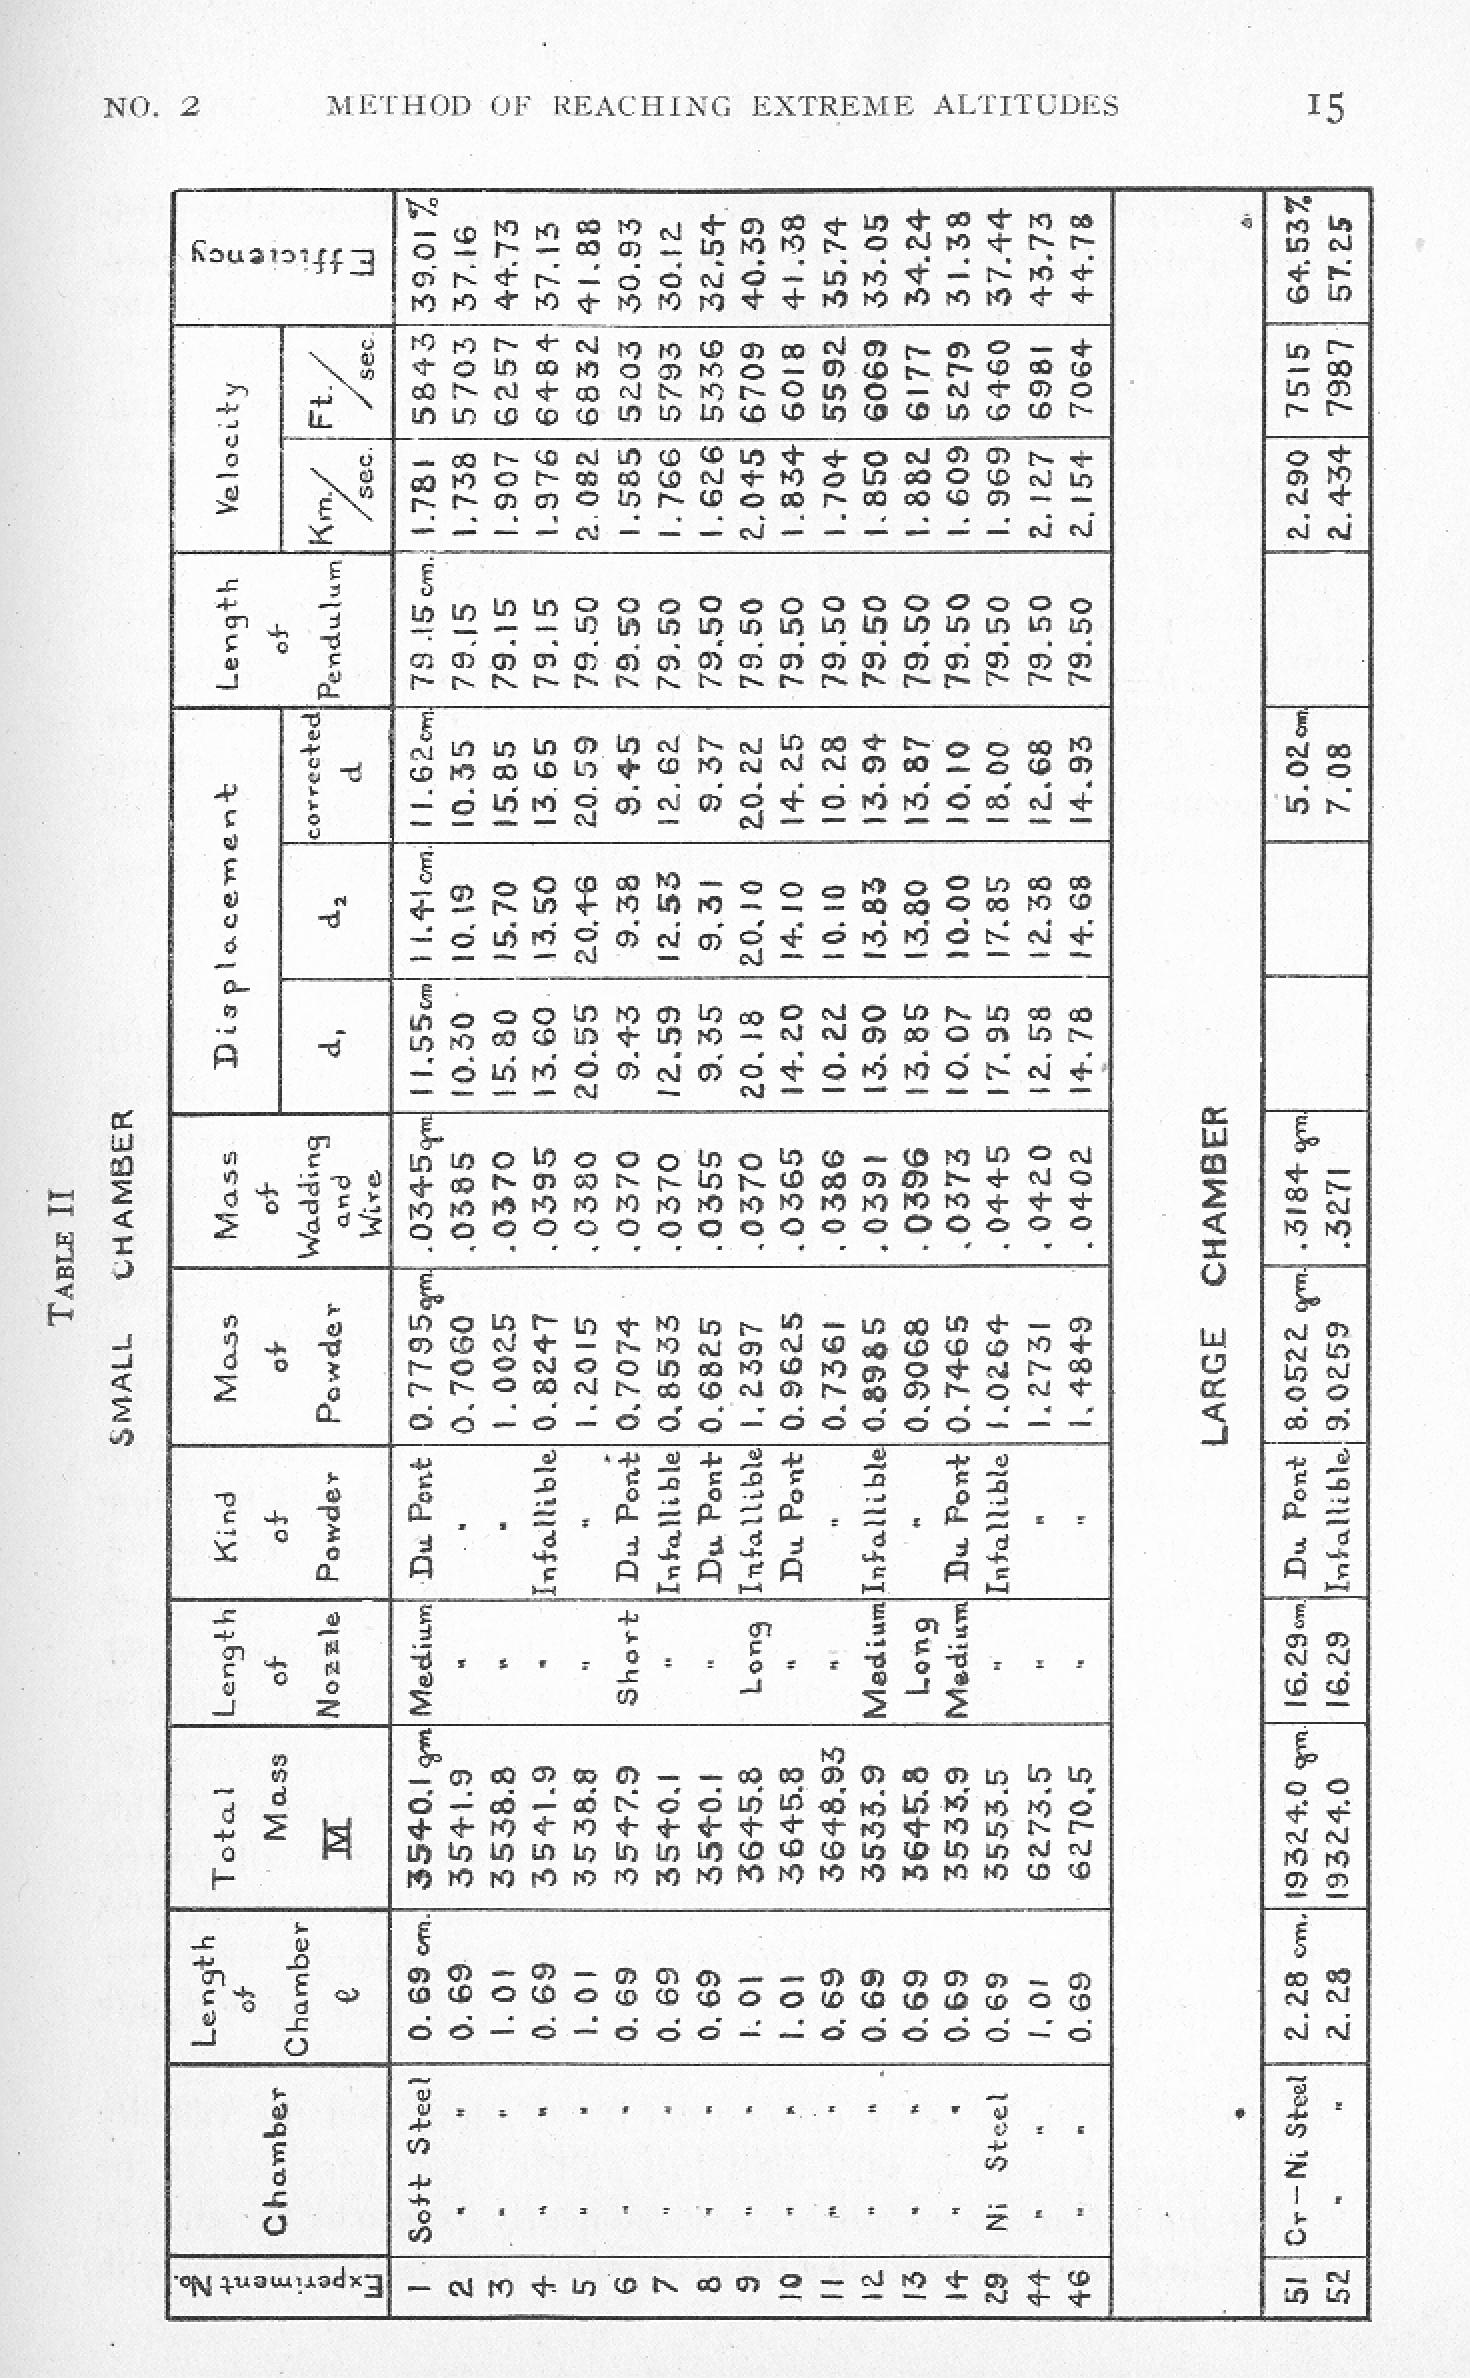 NO. 2 METHOD OF REACHING EXTREME ALTITUDES 15
TABLE II
SMALL CHAMBER
Experiment No. | Chamber | Length of Chamber ℓ | Total Mass M | Length of Nozzle | Kind of Powder | Mass of Powder | Mass of Wadding and Wire | Displacement d₁ | d₂ | corrected d | Length of Pendulum | Velocity Km./sec. | Ft./sec. | Efficiency
1 Soft Steel 0.69 cm. 3540.1 gm Medium Du Pont 0.7795 gm. .0345 gm 11.55 cm 11.41 cm. 11.62 cm. 79.15 cm. 1.781 5843 39.01%
2 " " 0.69 3541.9 " " 0.7060 .0385 10.30 10.19 10.35 79.15 1.738 5703 37.16
3 " " 1.01 3538.8 " " 1.0025 .0370 15.80 15.70 15.85 79.15 1.907 6257 44.73
4 " " 0.69 3541.9 " Infallible 0.8247 .0395 13.60 13.50 13.65 79.15 1.976 6484 37.13
5 " " 1.01 3538.8 " " 1.2015 .0380 20.55 20.46 20.59 79.50 2.082 6832 41.88
6 " " 0.69 3547.9 Short Du Pont 0.7074 .0370 9.43 9.38 9.45 79.50 1.585 5203 30.93
7 " " 0.69 3540.1 " Infallible 0.8533 .0370 12.59 12.53 12.62 79.50 1.766 5793 30.12
8 " " 0.69 3540.1 " Du Pont 0.6825 .0355 9.35 9.31 9.37 79.50 1.626 5336 32.54
9 " " 1.01 3645.8 Long Infallible 1.2397 .0370 20.18 20.10 20.22 79.50 2.045 6709 40.39
10 " " 1.01 3645.8 " Du Pont 0.9625 .0365 14.20 14.10 14.25 79.50 1.834 6018 41.38
11 " " 0.69 3648.93 " " 0.7361 .0386 10.22 10.10 10.28 79.50 1.704 5592 35.74
12 " " 0.69 3533.9 Medium Infallible 0.8985 .0391 13.90 13.83 13.94 79.50 1.850 6069 33.05
13 " " 0.69 3645.8 Long " 0.9068 .0396 13.85 13.80 13.87 79.50 1.882 6177 34.24
14 " " 0.69 3533.9 Medium Du Pont 0.7465 .0373 10.07 10.00 10.10 79.50 1.609 5279 31.38
29 Ni Steel 0.69 3553.5 " Infallible 1.0264 .0445 17.95 17.85 18.00 79.50 1.969 6460 37.44
44 " " 1.01 6273.5 " " 1.2731 .0420 12.58 12.38 12.68 79.50 2.127 6981 43.73
46 " " 0.69 6270.5 " " 1.4849 .0402 14.78 14.68 14.93 79.50 2.154 7064 44.78
LARGE CHAMBER
51 Cr-Ni Steel 2.28 cm. 19324.0 gm. 16.29 cm Du Pont 8.0522 gm. .3184 gm. 5.02 cm 2.290 7515 64.53%
52 " " 2.28 19324.0 16.29 Infallible 9.0259 .3271 7.08 2.434 7987 57.25